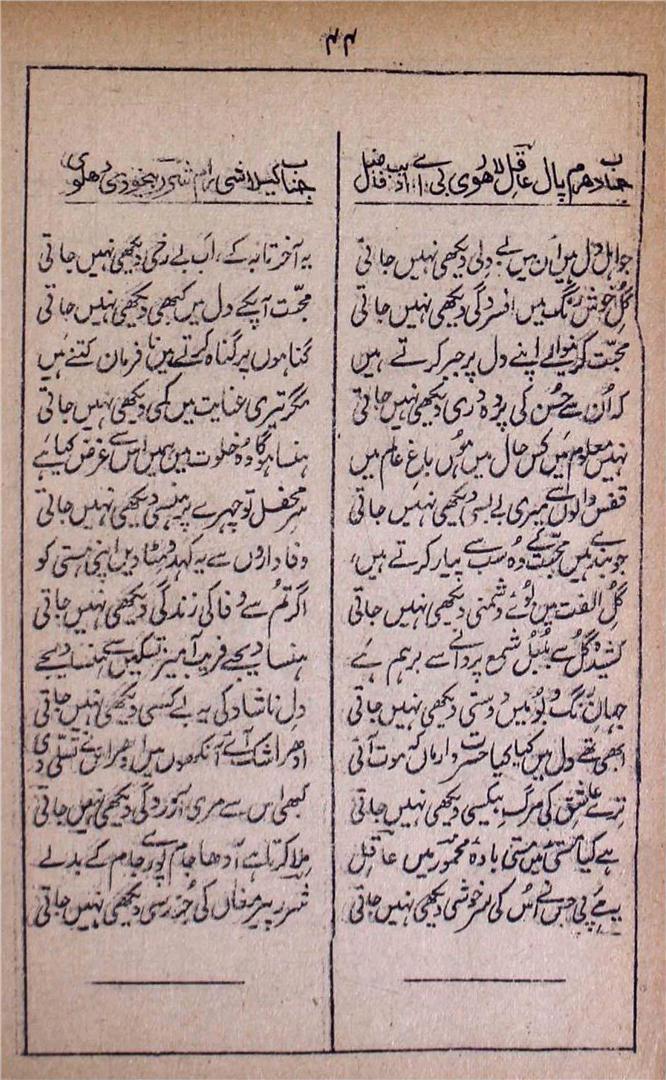 ۴۴
جناب دھرم پال عاقل لاہوری بی، اے ادیب فاضل
جو اہلِ دل ہیں اُن میں بے دلی دیکھی نہیں جاتی
گُلِ خوش رنگ میں افسردگی دیکھی نہیں جاتی
محبّت کرنیوالے اپنے دل پر جبر کرتے ہیں
کہ اُن سے حُسن کی پردہ دَری دیکھی نہیں جاتی
نہیں معلوم میں کس حال میں ہوں باغِ عالم میں
قفس والوں سے میری بے بسی دیکھی نہیں جاتی
جو بندے ہیں محبّت کے وہ سب سے پیار کرتے ہیں،
گُلِ الفت میں بُوئے دشمنی دیکھی نہیں جاتی
کشیدہ گُل سے بُلبُل شمع پروانے سے برہم ہے
جہانِ رنگ و بُو میں دوستی دیکھی نہیں جاتی
ابھی تھے دل میں کیا کیا حسرت و ارماں کہ موت آئی
ترے عاشق کی مرگِ بیکسی دیکھی نہیں جاتی
ہے کیا مستی میں مستی بادۂ مخمور میں عاقل
یہ مے پی جس نے اُس کی سرخوشی دیکھی نہیں جاتی
جناب کیلاشی رام شرر بیخودی دھلوی
یہ آخر تا بہ کے، اَب بے رخی دیکھی نہیں جاتی
محبّت آپکے دل میں کبھی دیکھی نہیں جاتی
گناہوں پر گناہ کرتے ہیں نا فرمان کتنے ہیں
مگر تیری عنایت میں کمی دیکھی نہیں جاتی
ہنسا ہوگا وہ خلوت میں ہمیں اس سے غرض کیا ہے
سرِ محفل تو چہرے پر ہنسی دیکھی نہیں جاتی
وفاداروں سے یہ کہدو مٹا دیں اپنی ہستی کو
اگر تُم سے وفا کی زندگی دیکھی نہیں جاتی
ہنسا دیجے فریب آمیز تسکیں سے ہنسا دیجے
دلِ ناشاد کی یہ بے کسی دیکھی نہیں جاتی
اِدھر اشک آئے آنکھوں میں اُدھر اس نے تسلّی دی
کبھی اس سے مری آزردگی دیکھی نہیں جاتی
مِلا کرتا ہے آدھا جام پُورے جام کے بدلے
شرر پیرِ مغاں کی جُز رسی دیکھی نہیں جاتی